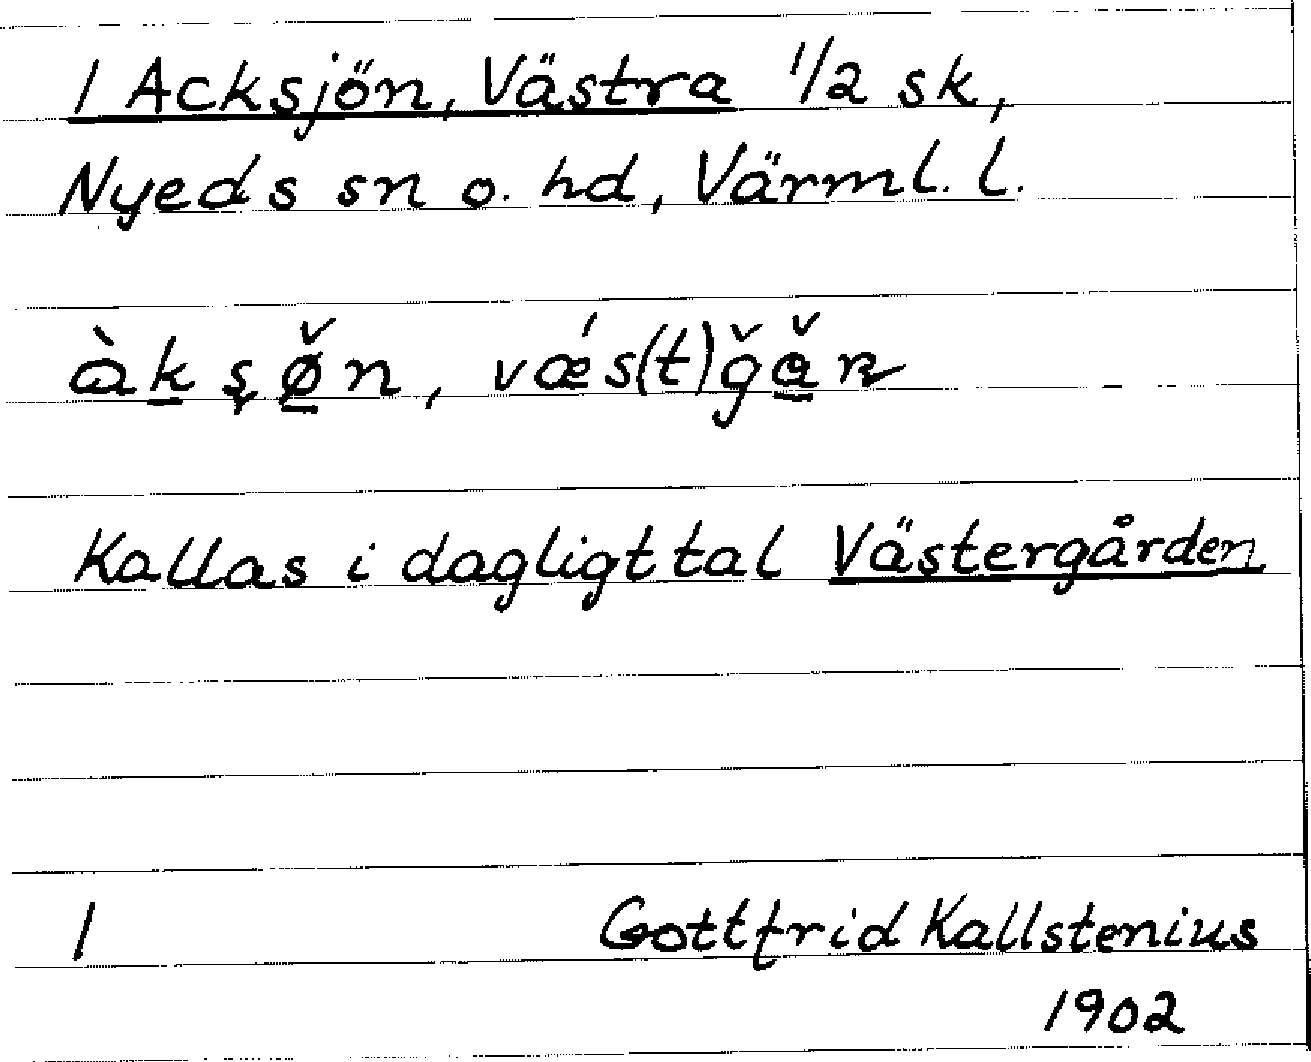 1 Acksjön, Västra 1/2 sk,
Nyeds sn o. hd, Värml. l.
àk̲ ş ø̲̌n, vǽs(t)ğǎ̲n
Kallas i dagligt tal Västergården
1 Gottfrid Kallstenius
1902